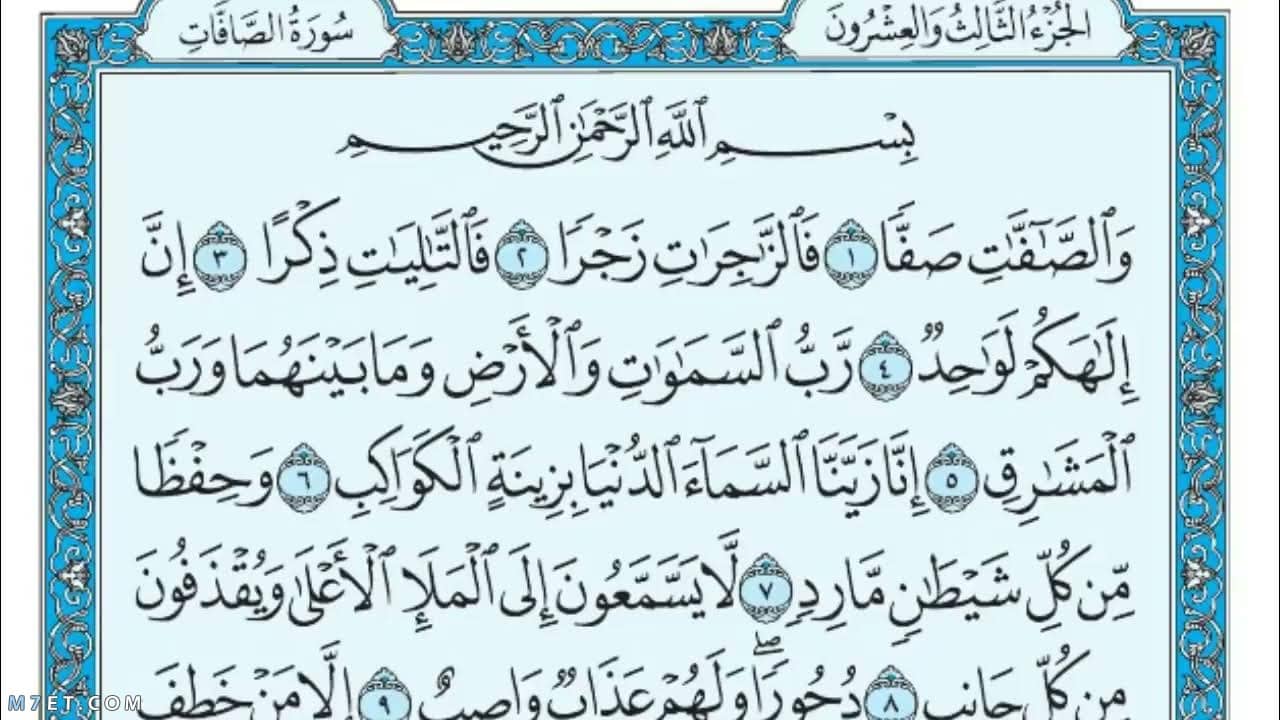 الجُزْءُ الثَّالِثُ وَالعِشْرُونَ
سُورَةُ الصَّافَّاتِ
بِسْمِ ٱللَّهِ ٱلرَّحْمَٰنِ ٱلرَّحِيمِ
وَٱلصَّٰٓفَّٰتِ صَفًّا ١ فَٱلزَّٰجِرَٰتِ زَجْرًا ٢ فَٱلتَّٰلِيَٰتِ ذِكْرًا ٣ إِنَّ
إِلَٰهَكُمْ لَوَٰحِدٌ ٤ رَّبُّ ٱلسَّمَٰوَٰتِ وَٱلْأَرْضِ وَمَا بَيْنَهُمَا وَرَبُّ
ٱلْمَشَٰرِقِ ٥ إِنَّا زَيَّنَّا ٱلسَّمَآءَ ٱلدُّنْيَا بِزِينَةٍ ٱلْكَوَاكِبِ ٦ وَحِفْظًا
مِّن كُلِّ شَيْطَٰنٍ مَّارِدٍ ٧ لَّا يَسَّمَّعُونَ إِلَى ٱلْمَلَإِ ٱلْأَعْلَىٰ وَيُقْذَفُونَ
مِن كُلِّ جَانِبٍ ٨ دُحُورًا ۖ وَلَهُمْ عَذَابٌ وَاصِبٌ ٩ إِلَّا مَنْ خَطِفَ
M7ET.COM